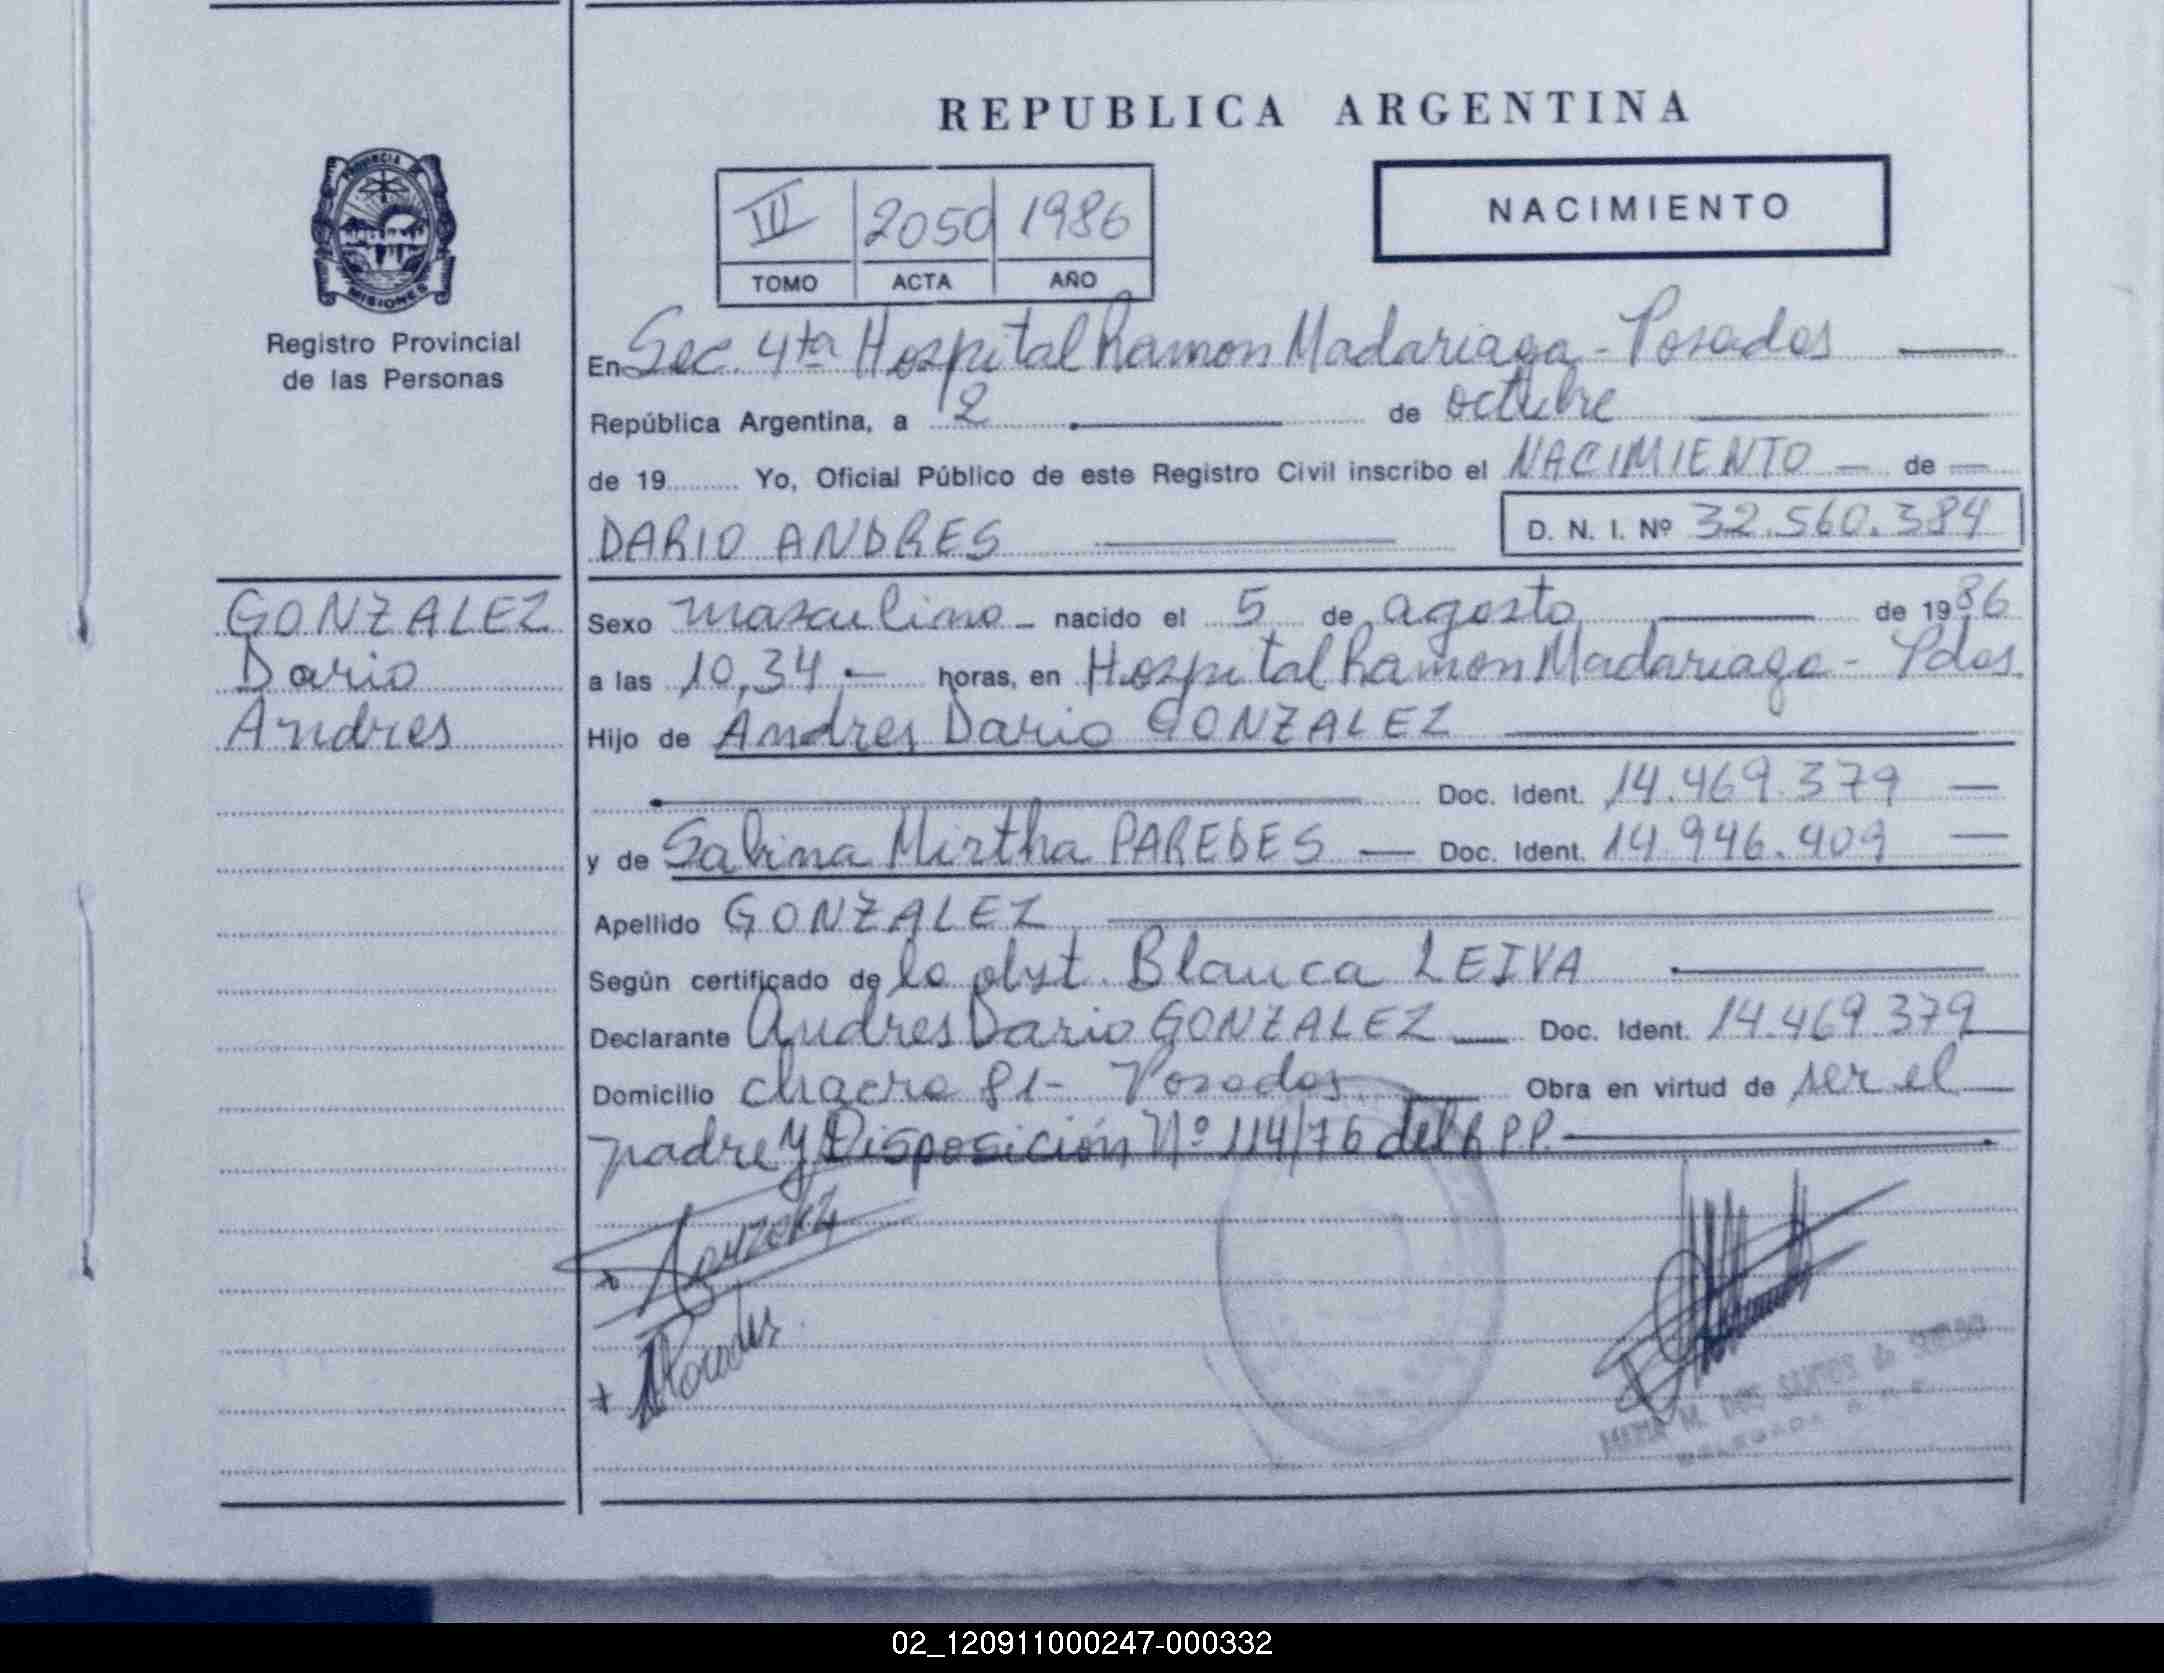 REPUBLICA ARGENTINA
PROVINCIA DE
MISIONES
Registro Provincial
de las Personas
III 2050 1986
TOMO ACTA AÑO
NACIMIENTO
En Sec. 4ta Hospital Ramon Madariaga - Posadas
República Argentina, a 2 de octubre
de 19 Yo, Oficial Público de este Registro Civil inscribo el NACIMIENTO de
DARIO ANDRES D. N. I. Nº 32.560.384
GONZALEZ
Dario
Andres
Sexo masculino nacido el 5 de agosto de 1986
a las 10,34 horas, en Hospital Ramon Madariaga - Pdas.
Hijo de Andres Dario GONZALEZ
Doc. Ident. 14.469.379
y de Sabina Mirtha PAREDES Doc. Ident. 14.946.409
Apellido GONZALEZ
Según certificado de la obst. Blanca LEIVA
Declarante Andres Dario GONZALEZ Doc. Ident. 14.469.379
Domicilio chacra 81- Posadas Obra en virtud de ser el
padre y Disposición Nº 114/76 del R.P.P.
M. DOS SANTOS de
02_120911000247-000332